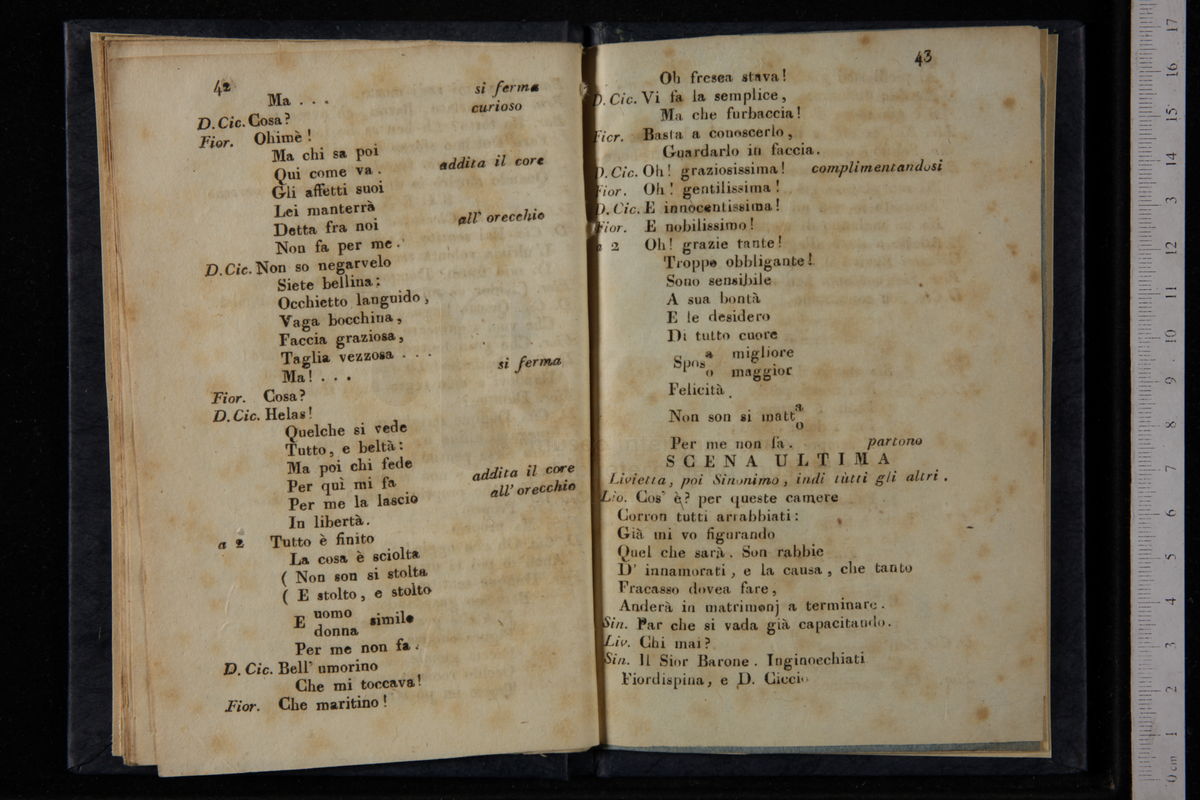 42
Ma . . . si ferma
curioso
D. Cic. Cosa?
Fior. Ohimè!
Ma chi sa poi
Qui come va. addita il core
Gli affetti suoi
Lei manterrà
Detta fra noi all' orecchio
Non fa per me.
D. Cic. Non so negarvelo
Siete bellina;
Occhietto languido,
Vaga bocchina,
Faccia graziosa,
Taglia vezzosa . . .
Ma! . . . si ferma
Fior. Cosa?
D. Cic. Helas!
Quelche si vede
Tutto, e beltà:
Ma poi chi fede
Per quì mi fa addita il core
Per me la lascio all' orecchio
In libertà.
a 2 Tutto è finito
La cosa è sciolta
( Non son si stolta
( E stolto, e stolto
E uomo donna simile
Per me non fa.
D. Cic. Bell' umorino
Che mi toccava!
Fior. Che maritino!
43
Oh fresea stava!
D. Cic. Vi fa la semplice,
Ma che furbaccia!
Fior. Basta a conoscerlo,
Guardarlo in faccia.
D. Cic. Oh! graziosissima! complimentandosi
Fior. Oh! gentilissima!
D. Cic. E innocentissima!
Fior. E nobilissimo!
a 2 Oh! grazie tante!
Troppo obbligante!
Sono sensibile
A sua bontà
E le desidero
Di tutto cuore
Spos a o migliore maggior
Felicità.
Non son si matt a o
Per me non fa. partono
SCENA ULTIMA
Livietta, poi Sinonimo, indi tutti gli altri.
Liv. Cos' è? per queste camere
Corron tutti arrabbiati:
Già mi vo figurando
Quel che sarà. Son rabbie
D' innamorati, e la causa, che tanto
Fracasso dovea fare,
Anderà in matrimonj a terminare.
Sin. Par che si vada già capacitando.
Liv. Chi mai?
Sin. Il Sior Barone. Inginocchiati
Fiordispina, e D. Ciccio